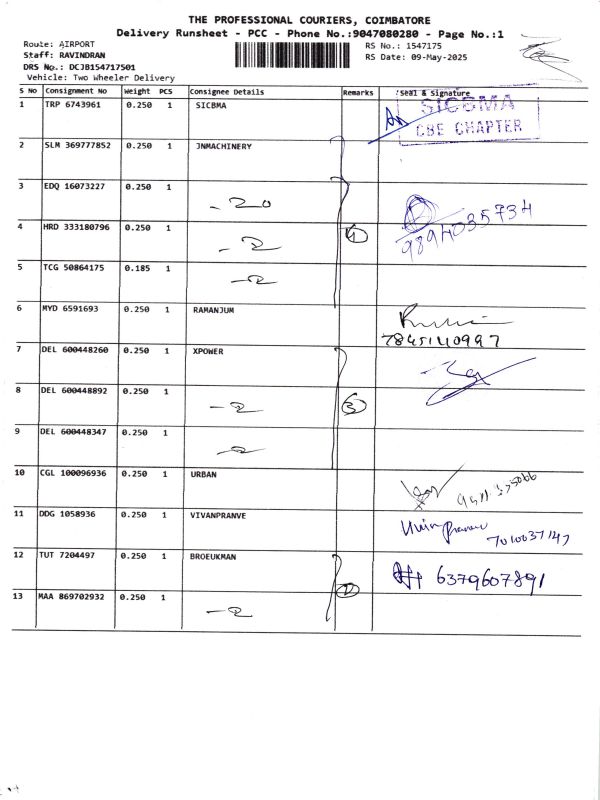 THE PROFESSIONAL COURIERS, COIMBATORE
Delivery Runsheet - PCC - Phone No.:9047080280 - Page No.:1
Route: AIRPORT
Staff: RAVINDRAN
DRS No.: DCJB154717501
Vehicle: Two Wheeler Delivery
RS No.: 1547175
RS Date: 09-May-2025
S No Consignment No Weight PCS Consignee Details Remarks Seal & Signature
1 TRP 6743961 0.250 1 SICBMA
SICBMA
CBE CHAPTER
2 SLM 369777852 0.250 1 JNMACHINERY
3 EDQ 16073227 0.250 1
9894035734
4 HRD 333180796 0.250 1 4
5 TCG 50864175 0.185 1
6 MYD 6591693 0.250 1 RAMANJUM
7845140997
7 DEL 600448260 0.250 1 XPOWER
8 DEL 600448892 0.250 1 3
9 DEL 600448347 0.250 1
10 CGL 100096936 0.250 1 URBAN
11 DDG 1058936 0.250 1 VIVANPRANVE
7010037147
12 TUT 7204497 0.250 1 BROEUKMAN
6379607891
13 MAA 869702932 0.250 1